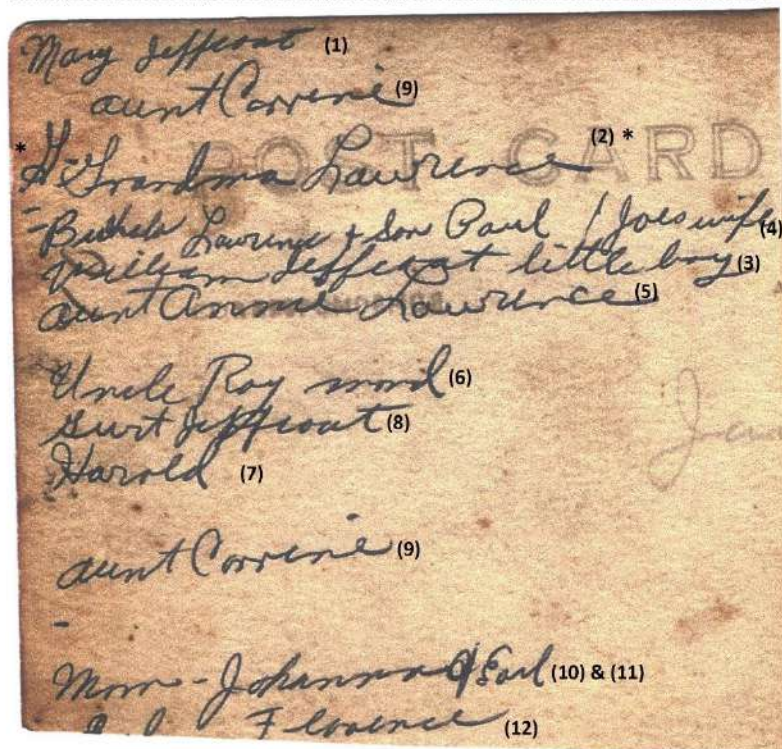 Mary Jeffcoat (1)
aunt Corrine (9)
* Grandma Lawrence (2) *
POST CARD
Lawrence & Son Paul / Joes wife (4)
William Jeffcoat little boy (3)
aunt Annie Lawrence (5)
Uncle Roy (6)
Jeffcoat (8)
Harold (7)
aunt Corrine (9)
-
Mom - Johanna & Earl (10) & (11)
Florence (12)